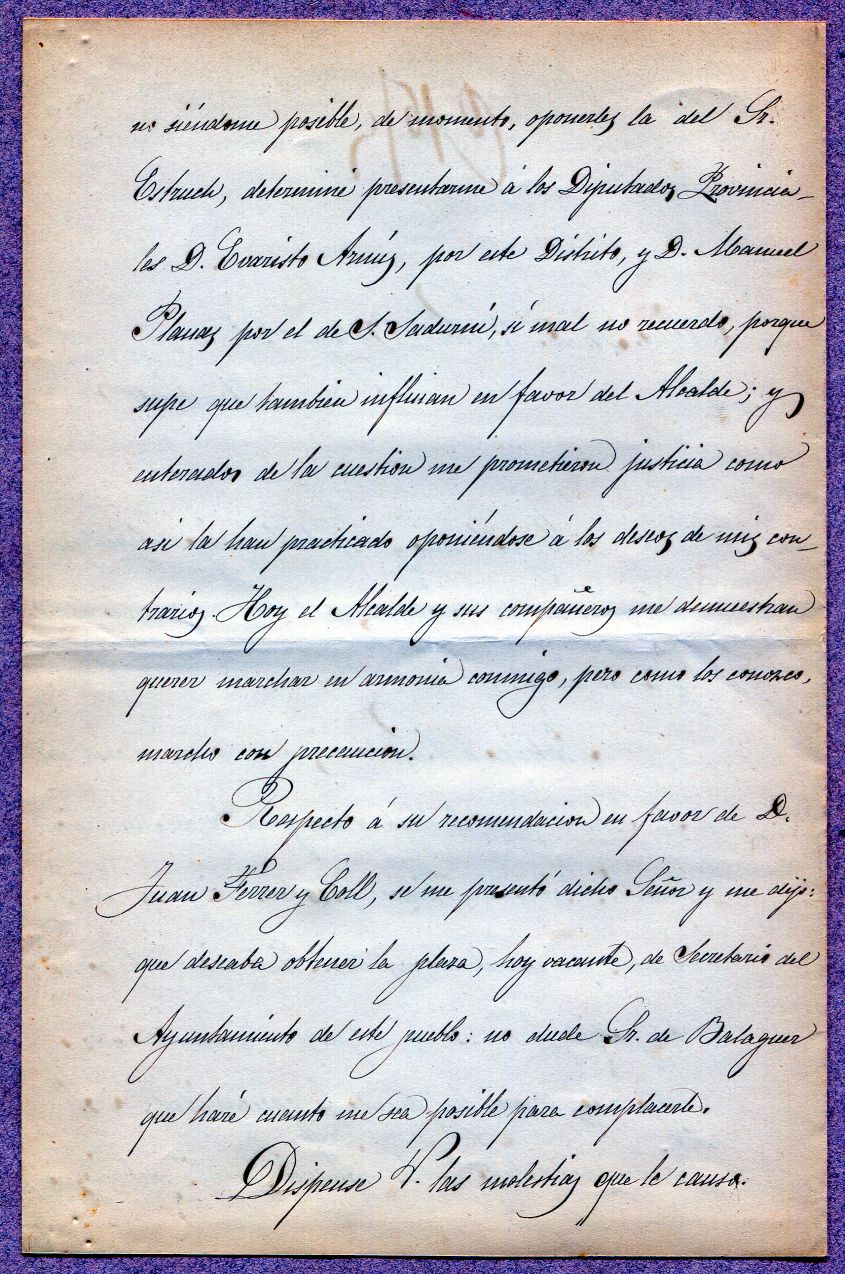 no siéndome posible, de momento, oponerles la del Sr.
Estruch, determiné presentarme á los Diputados Provincia-
les D. Evaristo Arnús, por este Distrito, y D. Manuel
Planas por el de S. Sadurní, si mal no recuerdo, porque
supe que tambien influian en favor del Alcalde; y
enterados de la cuestion me prometieron justicia como
asi la han practicado oponiéndose á los deseos de mis con-
trarios. Hoy el Alcalde y sus compañeros me demuestran
querer marchar en armonia conmigo, pero como los conozco,
marcho con precaucion.
Respecto á su recomendacion en favor de D.
Juan Ferrer y Coll, se me presentó dicho Señor y me dijo:
que deseaba obtener la plaza, hoy vacante, de Secretario del
Ayuntamiento de este pueblo: no dude Sr. de Balaguer
que haré cuanto me sea posible para complacerle.
Dispense V. las molestias que le causo.